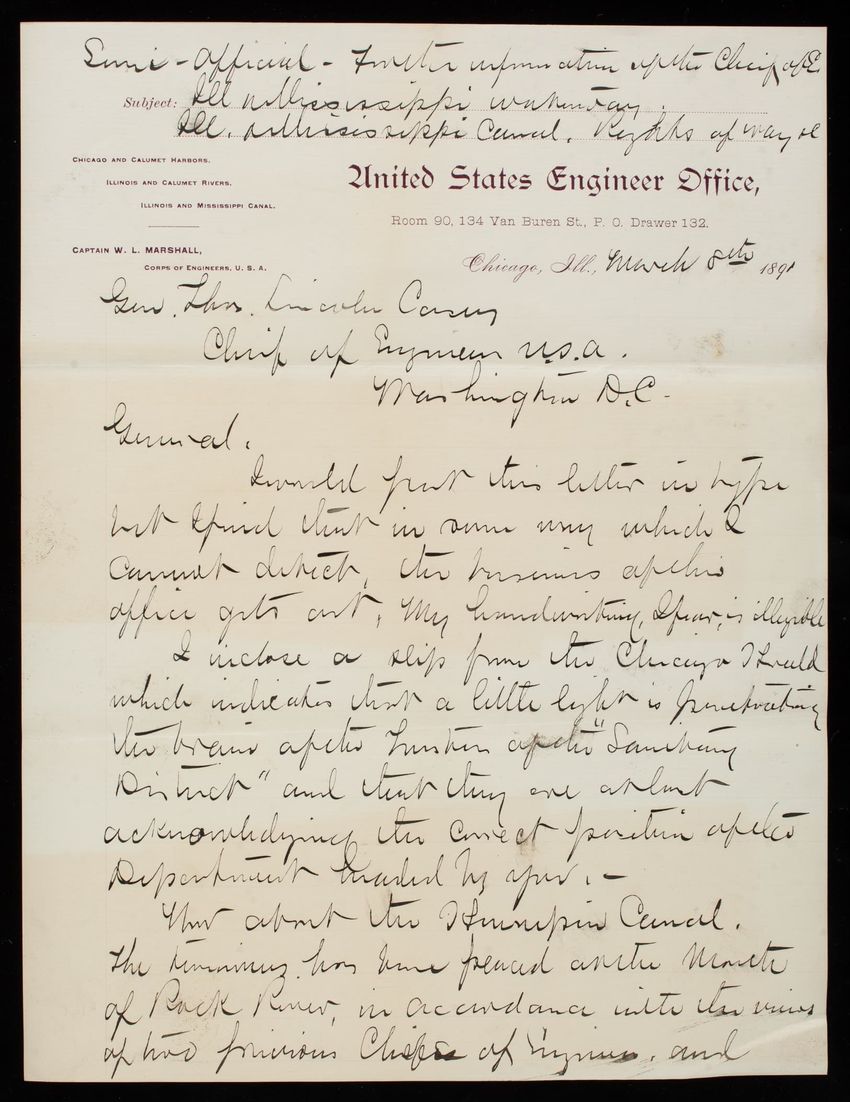 Semi-Official - For the information of the Chief of E.
Subject: Ill & Mississippi waterway.
Ill. & Mississippi Canal. Rights of way &c
CHICAGO AND CALUMET HARBORS.
ILLINOIS AND CALUMET RIVERS.
ILLINOIS AND MISSISSIPPI CANAL.
United States Engineer Office,
Room 90, 134 Van Buren St., P. O. Drawer 132.
CAPTAIN W. L. MARSHALL,
CORPS OF ENGINEERS, U. S. A.
Chicago, Ill., March 8th 1891
Gen. Thos. Lincoln Casey
Chief of Engineers U.S.A.
Washington D.C.
General.
I would put this letter in type
but I find that in some way which I
cannot detect, the business of this
office gets out. My handwriting, I fear, is illegible
I inclose a slip from the Chicago Herald
which indicates that a little light is penetrating
the brain of the Trustees of the "Sanitary
District" and that they are at last
acknowledging the correct position of the
Department headed by you. -
Now about the Hennepin Canal.
The terminus has been placed at the Mouth
of Rock River, in accordance with the views
of two previous Chiefs of Engineers, and